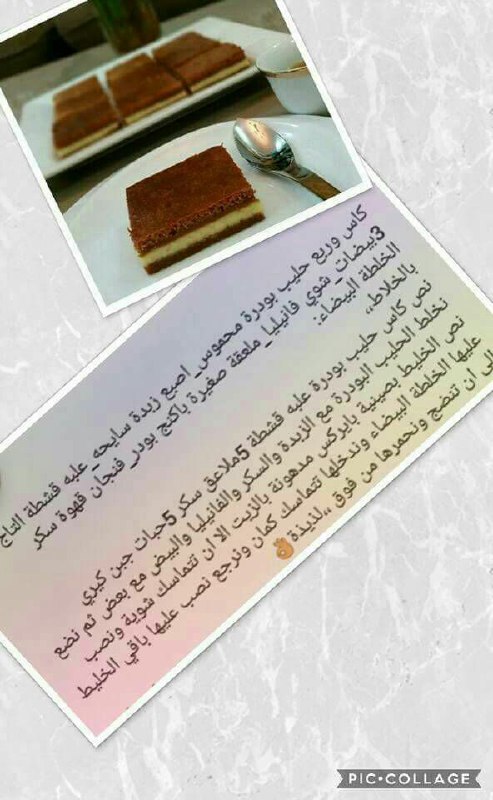 كاس وربع حليب بودرة محموس_اصبع زبدة سايحه_علبه قشطة التاج
3بيضات_شوي فانيليا_ملعقة صغيرة باكنج بودر_فنجان قهوة سكر
الخلطة البيضاء:
نص كاس حليب بودرة علبه قشطة 5ملاعق سكر 5حبات جبن كيري
بالخلاط،،
نخلط الحليب البودرة مع الزبدة والسكر والفانيليا والبيض مع بعض ثم نضع
نص الخليط بصينية بايركس مدهونة بالزيت الا ان تتماسك شوية ونصب
عليها الخلطة البيضاء وندخلها تتماسك كمان ونرجع نصب عليها باقي الخليط
الى ان تنضج ونحمرها من فوق ،،لذيذة👌
PIC•COLLAGE